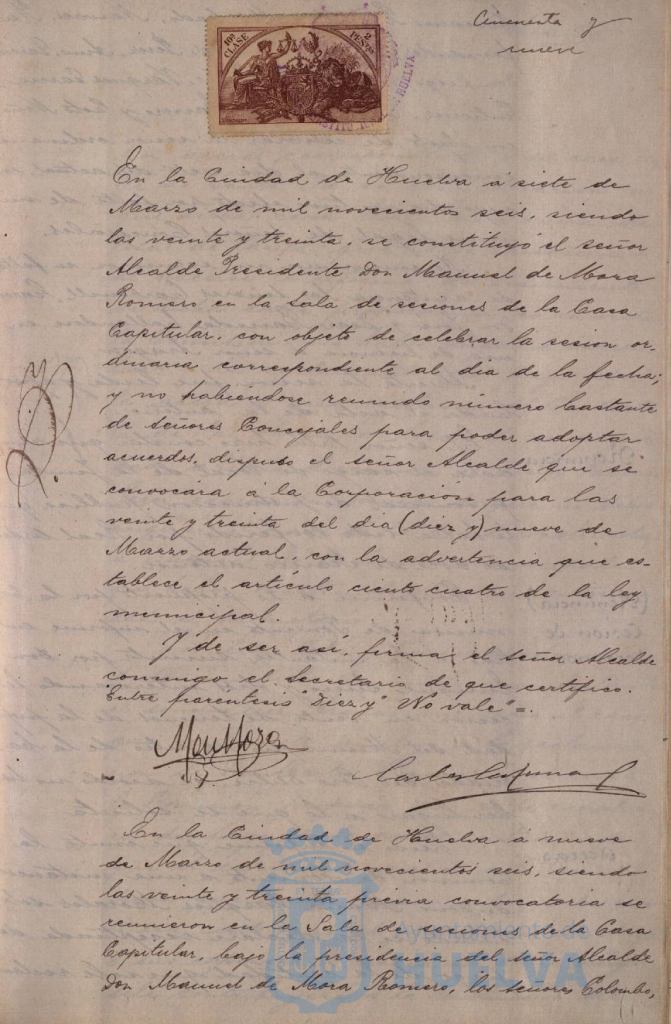 Cincuenta y
nueve
10ª CLASE
2 PESETAS
HUELVA
En la Ciudad de Huelva á siete de
Marzo de mil novecientos seis, siendo
las veinte y treinta, se constituyó el señor
Alcalde Presidente Don Manuel de Mora
Romero en la Sala de sesiones de la Casa
Capitular, con objeto de celebrar la sesion or-
dinaria correspondiente al dia de la fecha;
y no habiéndose reunido número bastante
de señores Concejales para poder adoptar
acuerdos, dispuso el señor Alcalde que se
convocára á la Corporación para las
veinte y treinta del dia (diez y) nueve de
Marzo actual, con la advertencia que es-
tablece el artículo ciento cuatro de la ley
municipal.
Y de ser así, firma el señor Alcalde
conmigo el Secretario de que certifico.
Entre paréntesis "Diez y" "No vale"=.
En la Ciudad de Huelva á nueve
de Marzo de mil novecientos seis, siendo
las veinte y treinta previa convocatoria se
reunieron en la Sala de sesiones de la Casa
Capitular, bajo la presidencia del Señor Alcalde
Don Manuel de Mora Romero, los señores Colombo,
Ayuntamiento de
HUELVA